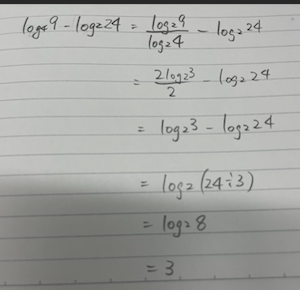 log₄9 - log₂24 = log₂9/log₂4 - log₂24
= 2log₂3/2 - log₂24
= log₂3 - log₂24
= log₂(24÷3)
= log₂8
= 3